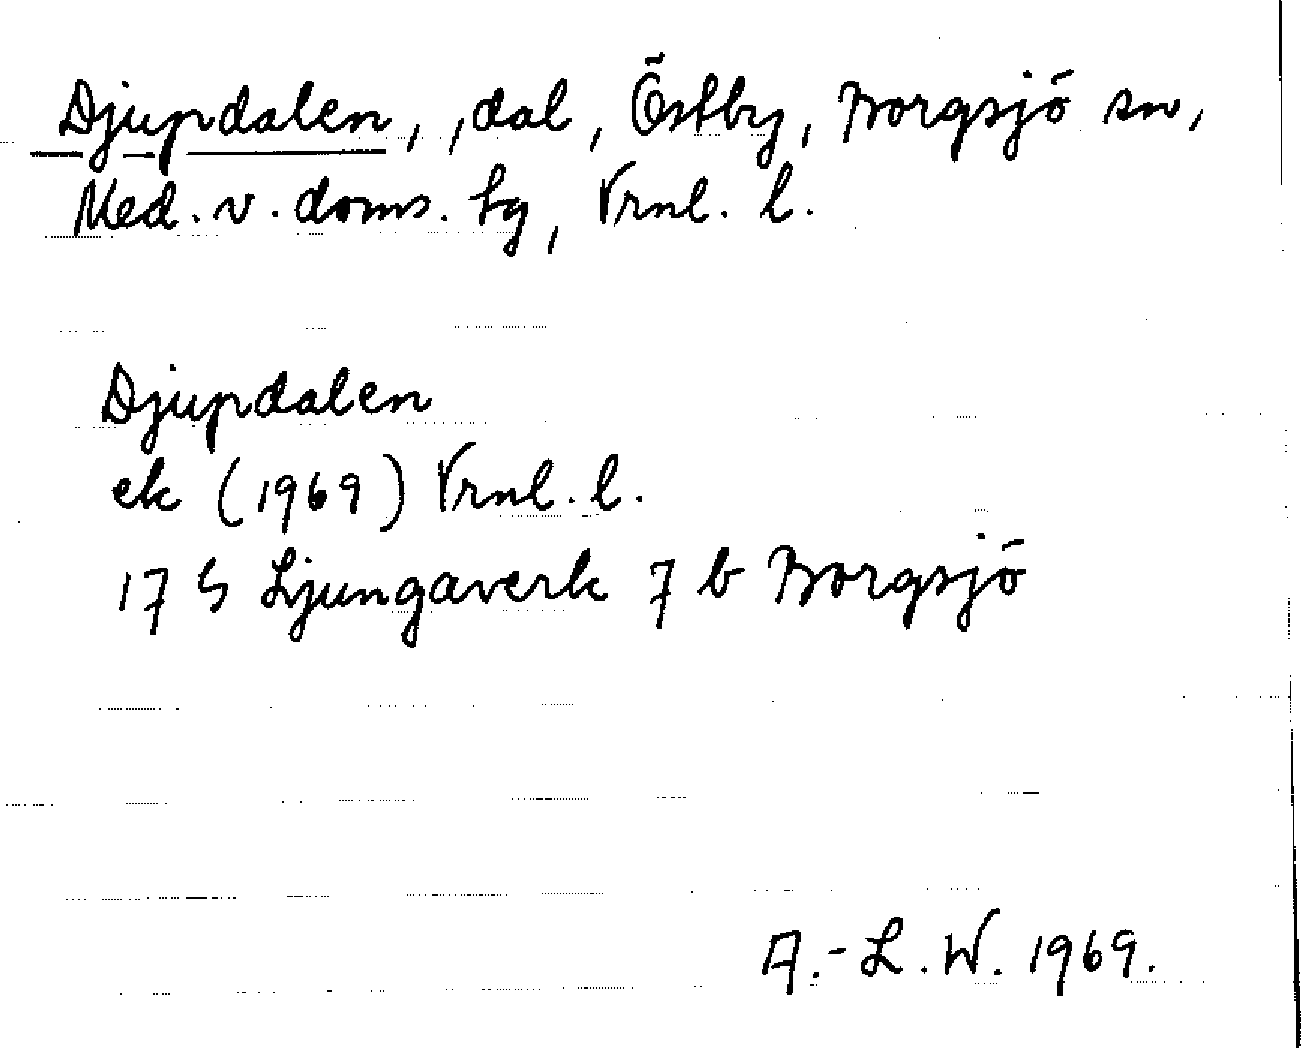 Djupdalen, , dal, Östby, Borgsjö sn,
Med. v. doms. tg, Vrnl. l.
Djupdalen
ek (1969) Vrnl. l.
17 G Ljungaverk 7 b Borgsjö
A.-L. W. 1969.